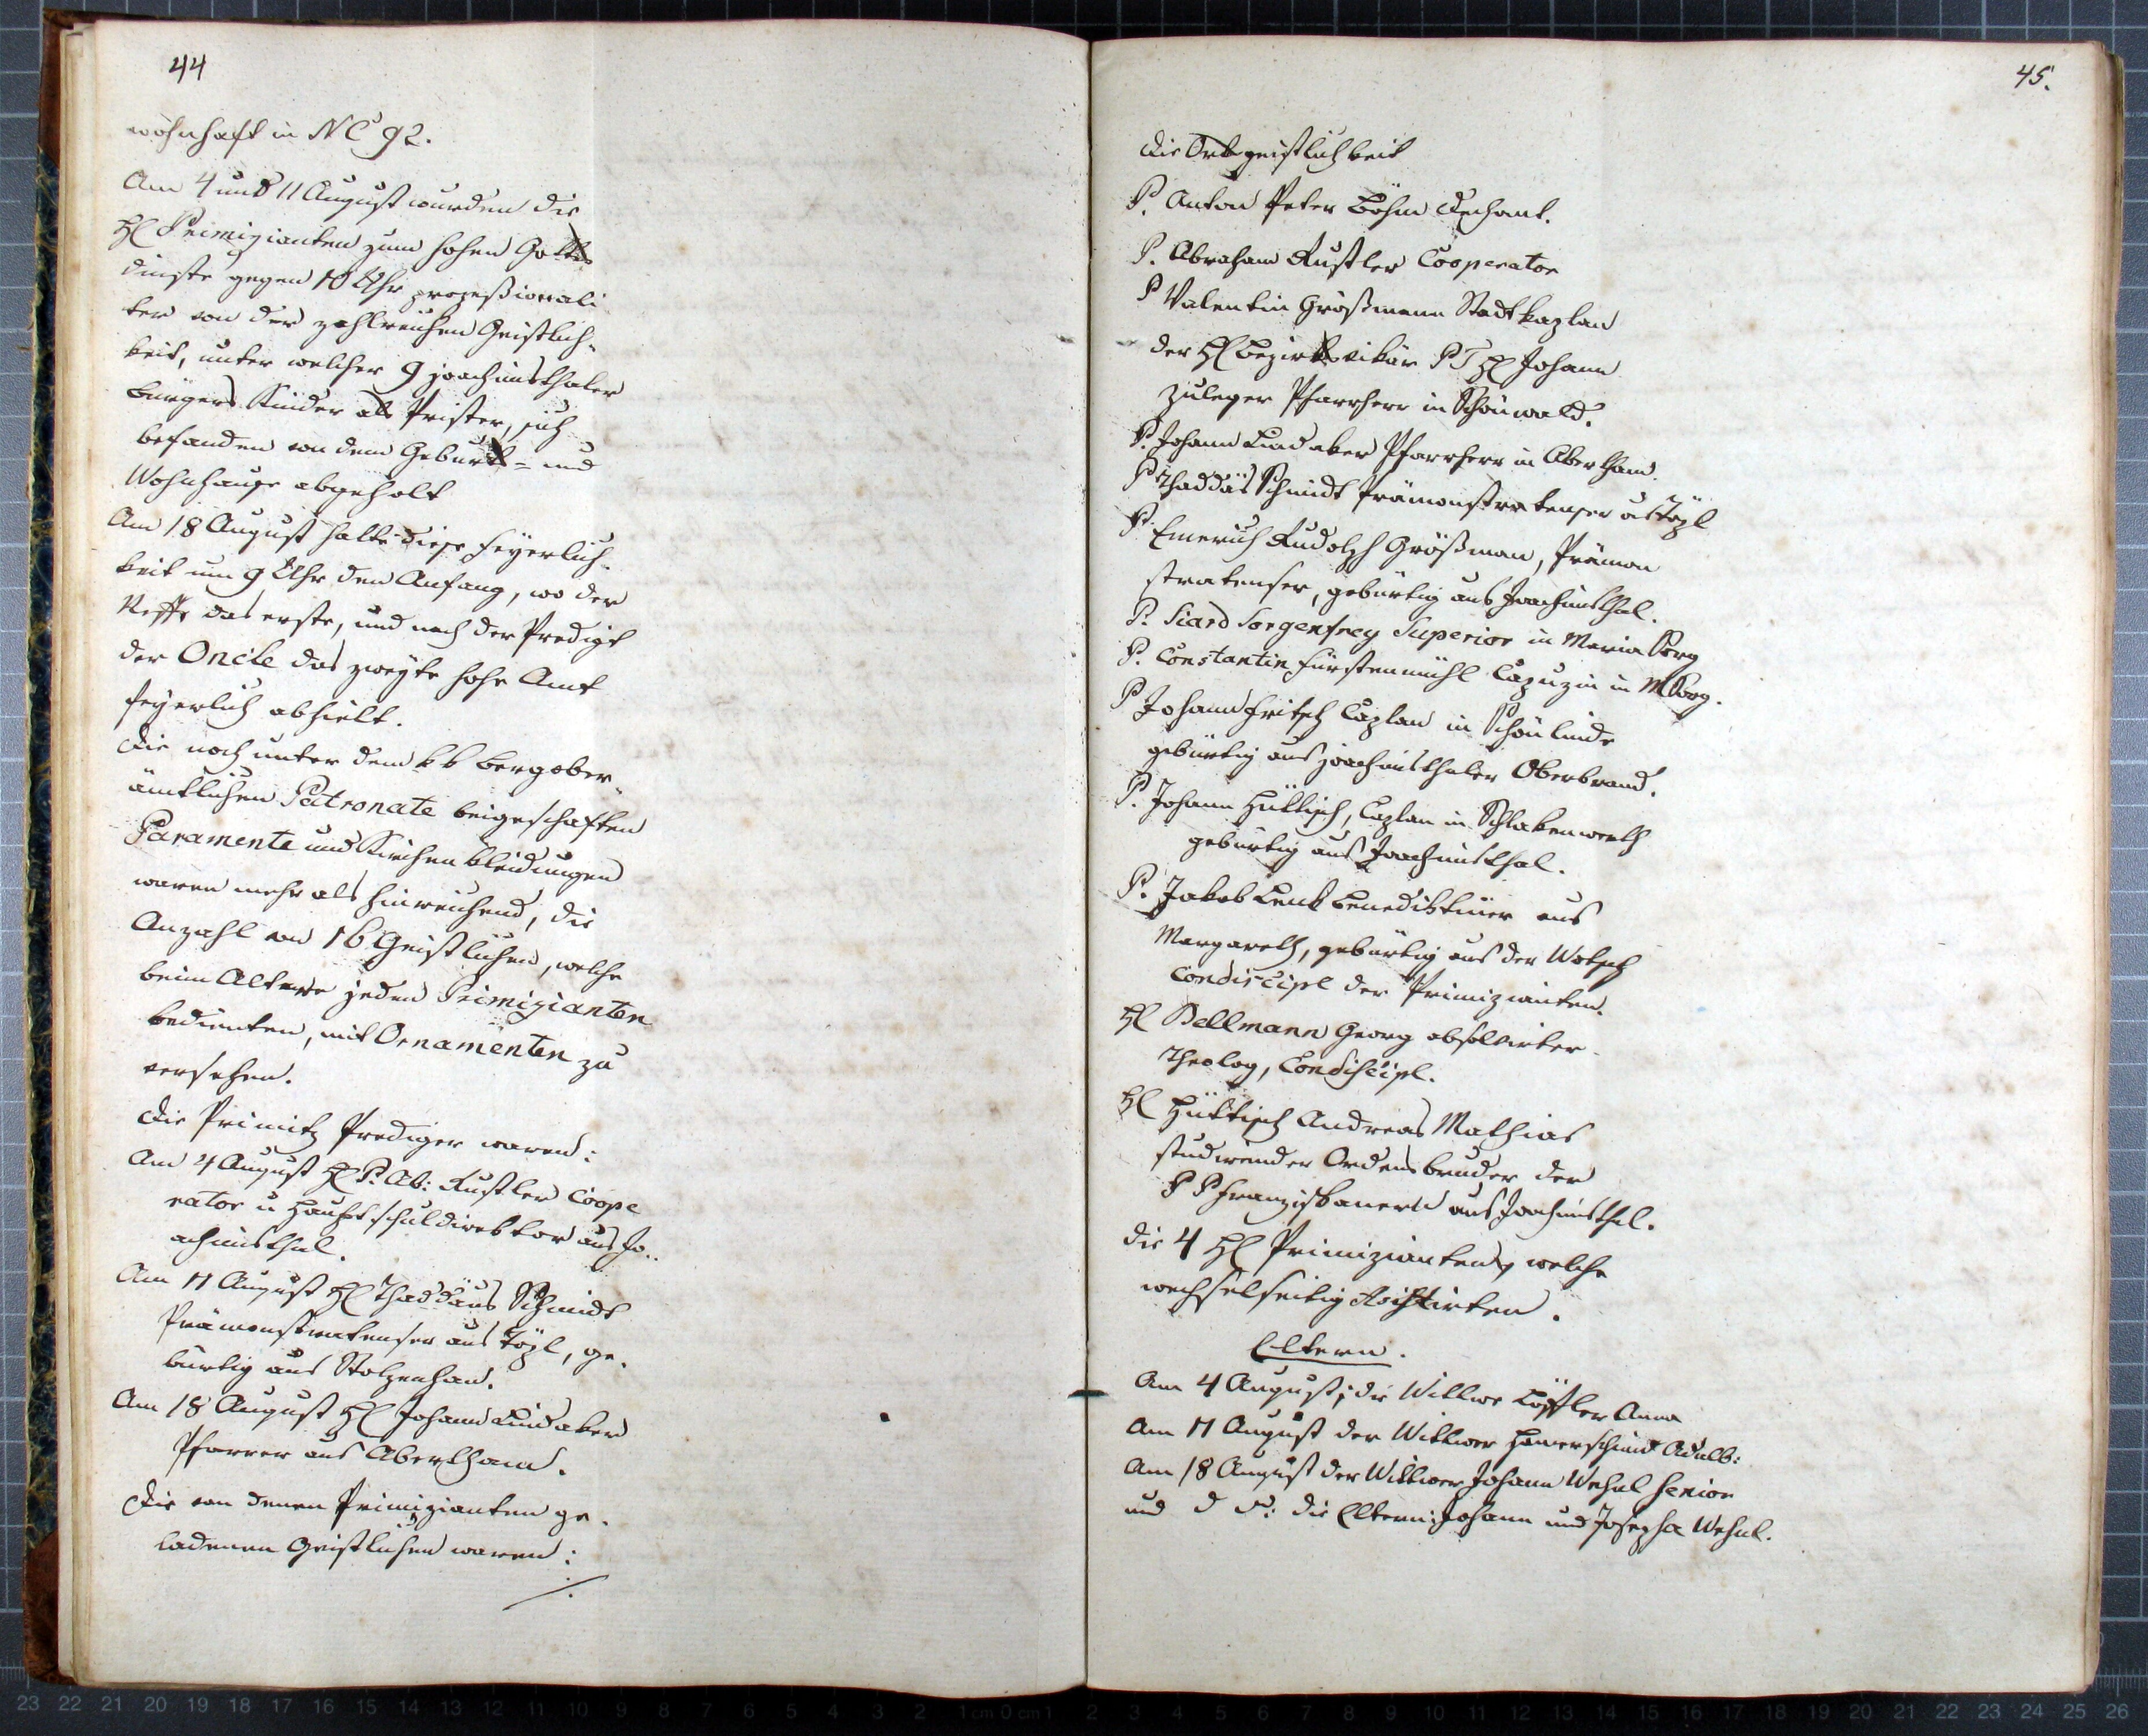 44
wohnhaft in NC 92.
Am 4 und 11 August wurden die
H Primizianten zum hohen Gottes
dinste gegen 10 Uhr prozeßionali
ter von der zahlreichen Geistlich-
keit, unter welcher 9 joachimsthaler
Bürgers Kinder als Prister, sich
befanden von dem Geburts- und
Wohnhause abgeholt
Am 18 August hatte diese Feyerlich-
keit um 9 Uhr den Anfang, wo der
Neffe das erste, und nach der Predigt
der Oncle das zweyte hohe Amt
feyerlich abhielt.
Die noch unter dem kk Bergober-
ämtlichen Patronate beigeschaften
Paramente und Kirchenkleidungen
waren mehr als hinreichend, die
Anzahl von 16 Geistlichen, welche
beim Altare jeden Primizianten
bedienten, mit Ornamenten zu
versehen.
Die Primitz Prediger waren:
Am 4 August H P. Ab: Rustler Coope
rator u Hauptschuldirektor aus Jo-
achimsthal.
Am 11 August H Thaddäus Schmidt
Prämonstratenser aus Töpl, ge-
bürtig aus Stolzenhan.
Am 18 August H Johann Lindaker
Pfarrer aus Abertham.
Die von denen Primizianten ge-
ladenen Geistlichen waren:
./.
45.
Die Ortsgeistlichkeit
P. Anton Peter Böhm Dechant.
P. Abraham Rustler Cooperator
P Valentin Größmann Stadtkaplan
der H Bezirksvikär PT H Johann
Zuleger Pfarrherr in Schönwald.
P. Johann Lindaker Pfarrherr in Abertham.
P Thaddäs Schmidt Prämonstratenser aus Töpl
P. Emerich Rudolph Größman, Prämon
stratenser, gebürtig aus Joachimsthal.
P. Siard Sorgenfrey Superior in Maria Sorg
P. Constantin Fürstenmühl Capuzin in M Sorg.
P Johann Fritsch Caplan in Schönlinde
gebürtig aus joachimsthaler Oberbrand.
P. Johann Hüttisch, Caplan in Schlakenwerth
gebürtig aus Joachimsthal.
P. Jakob Lenk Benediktiner aus
Margareth, gebürtig aus der Wotsch
Condiscipl der Primizianten.
H Bellmann Georg absolvirter
Theolog, Condiscipl.
H Hüttisch Andreas Mathias
studirender Ordensbruder der
PP Franziskanern aus Joachimsthal.
Die 4 H Primizianten, welche
wechselseitig Asistirten.
Eltern.
Am 4 August, die Wittwe Löffler Anna
Am 11 August der Wittwer Hamerschmid Adalb:
Am 18 August der Wittwer Johann Wehsel Senior
und d d: die Eltern: Johann und Josepha Wehsel.